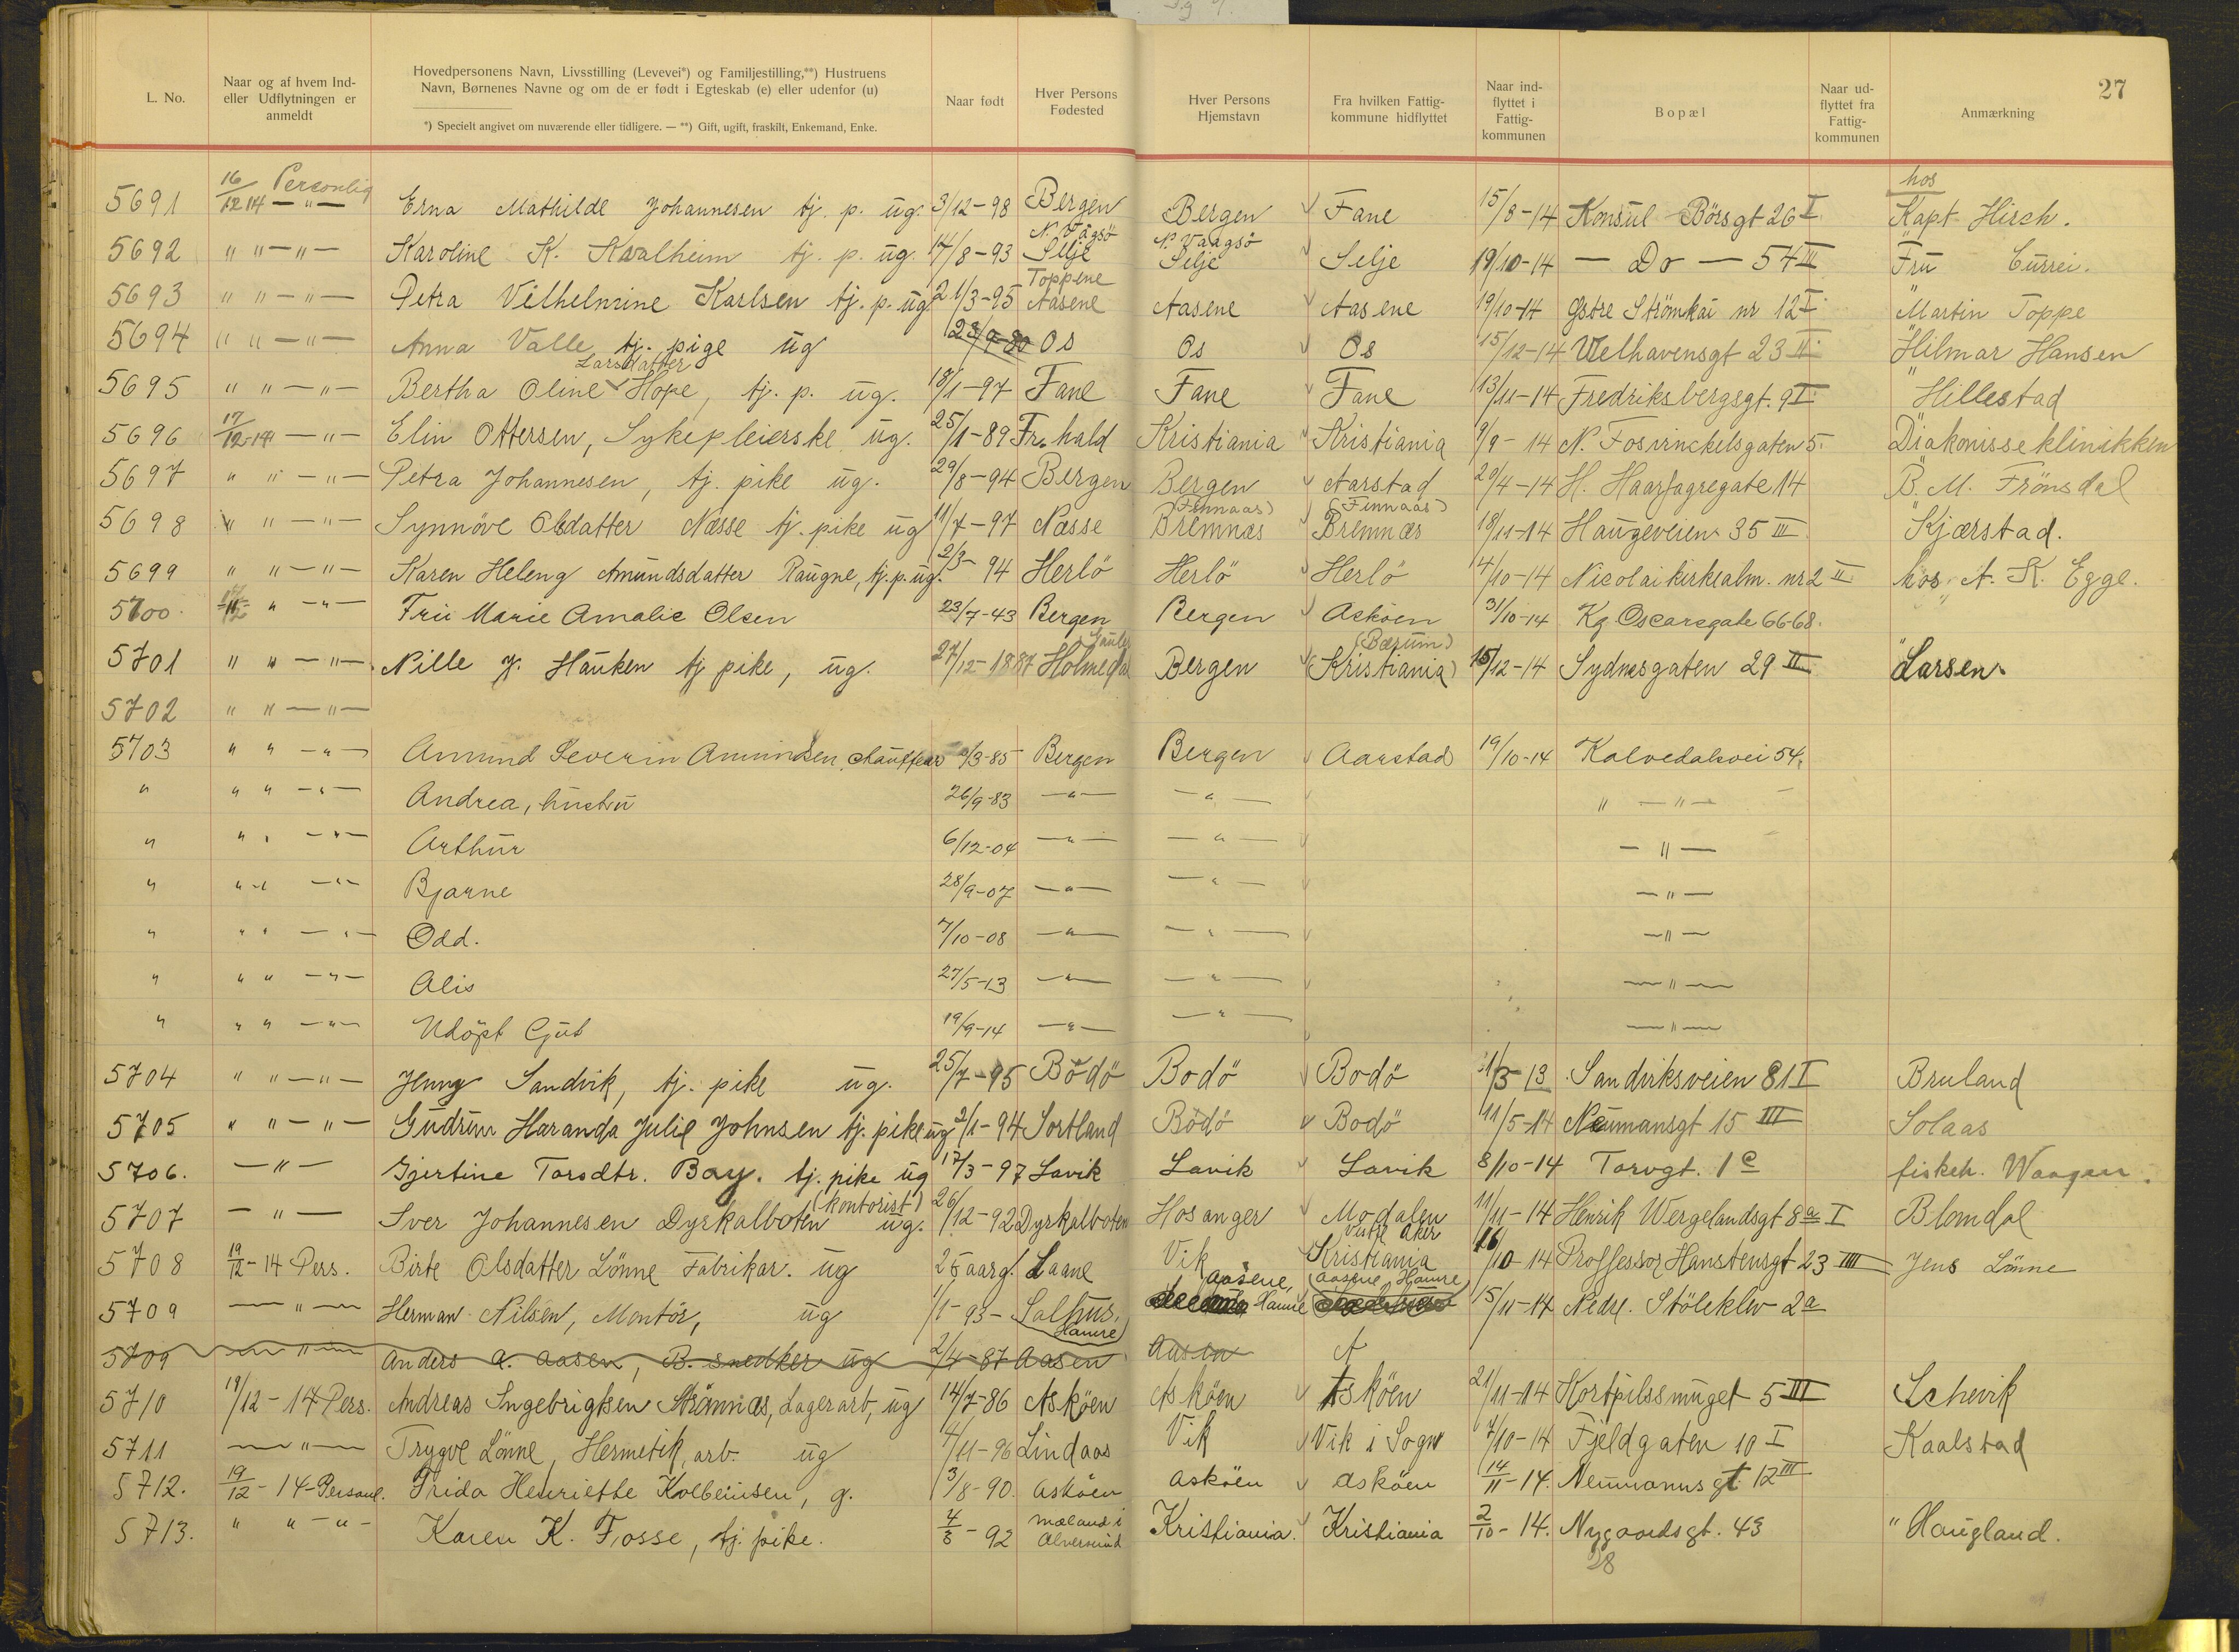 27
L. No.
Naar og af hvem Ind- eller Udflytningen er anmeldt
Hovedpersonens Navn, Livsstilling (Levevei*) og Familjestilling,**) Hustruens Navn, Børnenes Navne og om de er født i Egteskab (e) eller udenfor (u)
*) Specielt angivet om nuværende eller tidligere. — **) Gift, ugift, fraskilt, Enkemand, Enke.
Naar født
Hver Persons Fødested
Hver Persons Hjemstavn
Fra hvilken Fattigkommune hidflyttet
Naar indflyttet i Fattigkommunen
Bopæl
Naar udflyttet fra Fattigkommunen
Anmærkning
5691 16/12 14 Personlig — " — Erna Mathilde Johannesen tj. p. ug. 3/12-98 Bergen Bergen Fane 15/8-14 Konsul Børsgt 26 I hos Kapt Hirch.
5692 " " — " — Karoline K. Kvalheim tj. p. ug. 17/8-93 N. Vågsö Selje N. Vaagsö Selje Selje 19/10-14 — Do — 54 III Fru Currei.
5693 " " — " — Petra Vilhelmine Karlsen tj. p. ug 21/3-95 Toppene Aasene Aasene Aasene 19/10-14 Østre Strömkai nr 12 I " Martin Toppe
5694 " " — " — Anna Valle tj. pige ug 23/9-80 Os Os Os 15/12-14 Welhavensgt 23 II Hilmar Hansen
5695 " " — " — Bertha Oline Larsdatter Hope, tj. p. ug. 18/1-97 Fane Fane Fane 13/11-14 Fredriksbergsgt. 9 I " Hillestad
5696 17/12-14 — " — Elin Ottersen, Sykepleierske ug. 25/1-89 Fr.hald Kristiania Kristiania 9/9-14 N. Fosvinckelsgaten 5. Diakonisseklinikken
5697 " " — " — Petra Johannesen, tj. pike ug. 29/8-94 Bergen Bergen Aarstad 20/4-14 H. Haarfagregate 14 B. M. Frönsdal
5698 " " — " — Synnöve Olsdatter Næsse tj. pike ug 11/7-97 Næsse (Finnaas) Bremnæs (Finnaas) Bremnæs 18/11-14 Haugeveien 35 III " Kjærstad.
5699 " " — " — Karen Heleng Amundsdatter Raugne, tj. p. ug. 2/3-94 Herlö Herlö Herlö 14/10-14 Nicolaikirkealm. nr 2 II hos A. K. Egge.
5700. " — " — Fru Marie Amalie Olsen 23/7-43 Bergen Bergen Asköen 31/10-14 Kg Oscarsgate 66-68.
5701 " " — " — Nille J. Hauken tj pike, ug. 27/12-1887 Holmedal Bergen (Bærum) (Kristiania) 15/12-14 Sydnesgaten 29 II " Larsen.
5702 " " — " —
5703 " " — " — Amund Severin Amundsen, chauffeur /3-85 Bergen Bergen Aarstad 19/10-14 Kalvedalsvei 54.
" " " — " — Andrea, hustru 26/9-83 — " — — " — " — " —
" " " — " — Arthur 6/12-04 — " — — " — — " —
" " " — " — Bjarne 28/9-07 — " — — " — — " —
" " " — " — Odd. 7/10-08 — " — — " — — " —
" " " — " — Alis 27/5-13 — " — — " — — " —
" " " — " — Udöpt Gut 19/9-14 — " — — " — — " —
5704 " " — " — Jenny Sandvik, tj. pike ug. 25/7-95 Bodö Bodö Bodö /3-13 Sandviksveien 81 I Bruland
5705 " " — " — Gudrun Haranda Julie Johnsen tj. pike ug 2/1-94 Sortland Bodö Bodö 11/5-14 Neumansgt 15 III Solaas
5706. — " — Gjertine Torsdtr. Bay. tj. pike ug 17/3-97 Lavik Lavik Lavik 8/10-14 Torvgt. 1 c fiskeh. Waagan.
5707 — " — Iver Johannesen Dyrkalboten (kontorist) ug. 26/12-92 Dyrkalboten Hosanger Modalen 11/11-14 Henrik Wergelandsgt 8a I Blomdal
5708 19/12-14 Pers. Birte Olsdatter Lönne Fabrikar. ug 25 aarg. Laane Vik Vestre Aker Kristiania 16/10-14 Proffessor Hanstensgt 23 IIII Jens Lönne
5709 — " — Herman Nilsen, Montör, ug 1/1-93 Salhus. (Hamre) Aasene, Hamre Aasene Hamre 15/11-14 Nedre. Stöleklw 2a
5709 — " — Anders A. Aasen, B. snedker ug 2/4-87 Aasen Aasen A
5710 19/12-14 Pers. Andreas Ingebrigtsen Strömnæs, Lagerarb, ug 14/7-86 Asköen Asköen Asköen 21/11-14 Kortpilssmuget 5 III Schevik
5711 — " — Trygve Lönne, Hermetik arb. ug 4/11-96 Lindaas Vik Vik i Sogn 7/10-14 Fjeldgaten 10 I Kaalstad
5712. 19/12-14-Personl. Frida Henriette Kolbeinsen, g. 3/8-90. Asköen Asköen Asköen 14/11-14. Neumannsgt. 12 III
5713. " " — " — Karen K. Fosse, tj. pike. 4/3-92 Mæland i Alversund Kristiania. Kristiania 2/10-14. Nygaardsgt. 43 " Haugland.
28